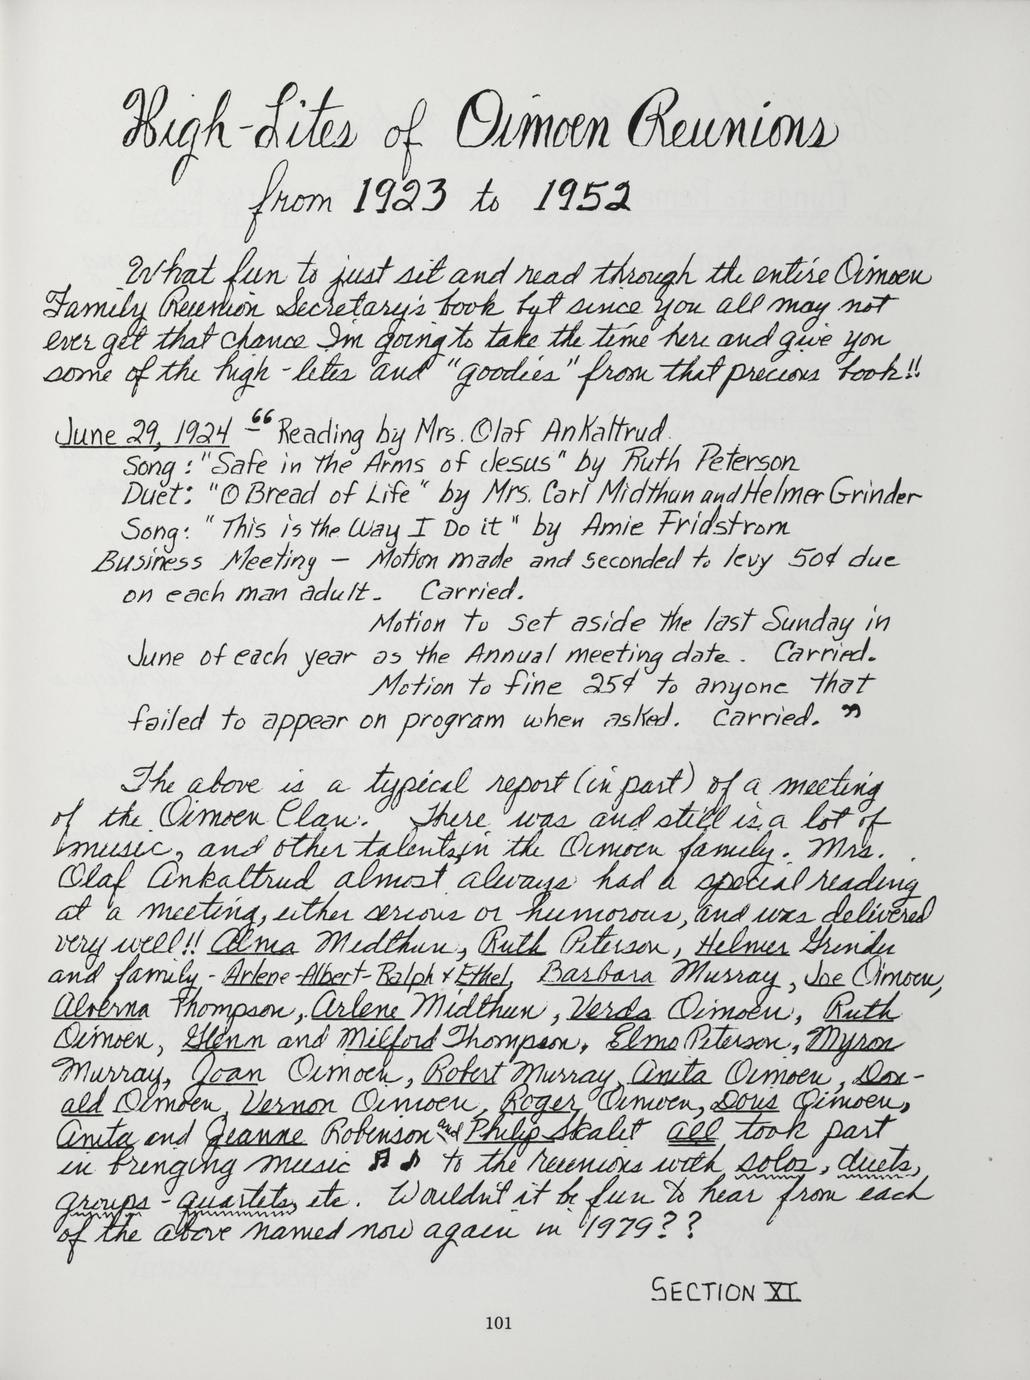 High-Lites of Oimoen Reunions
from 1923 to 1952
What fun to just sit and read through the entire Oimoen
Family Reunion Secretary's book but since you all may not
ever get that chance I'm going to take the time here and give you
some of the high-lites and "goodies" from that precious book!!
June 29, 1924 - "Reading by Mrs. Olaf Ankaltrud
Song: "Safe in the Arms of Jesus" by Ruth Peterson
Duet: "O Bread of Life" by Mrs. Carl Midthun and Helmer Grinder
Song: "This is the Way I Do it" by Amie Fridstrom
Business Meeting - Motion made and seconded to levy 50¢ due
on each man adult. Carried.
Motion to set aside the last Sunday in
June of each year as the Annual meeting date. Carried.
Motion to fine 25¢ to anyone that
failed to appear on program when asked. Carried."
The above is a typical report (in part) of a meeting
of the Oimoen Clan. There was and still is a lot of
music, and other talents in the Oimoen family. Mrs.
Olaf Ankaltrud almost always had a special reading
at a meeting, either serious or humorous, and was delivered
very well!! Alma Midthun, Ruth Peterson, Helmer Grinder
and family - Arlene-Albert-Ralph & Ethel, Barbara Murray, Joe Oimoen,
Alverna Thompson, Arlene Midthun, Verda Oimoen, Ruth
Oimoen, Glenn and Milford Thompson, Elmo Peterson, Myron
Murray, Joan Oimoen, Robert Murray, Anita Oimoen, Don-
ald Oimoen, Vernon Oimoen, Roger Oimoen, Doris Oimoen,
Anita and Jeanne Robenson and Philip Skalet all took part
in bringing music ♫ ♪ to the reunions with solos, duets,
groups - quartets, etc. Wouldn't it be fun to hear from each
of the above named now again in 1979??
SECTION XI
101